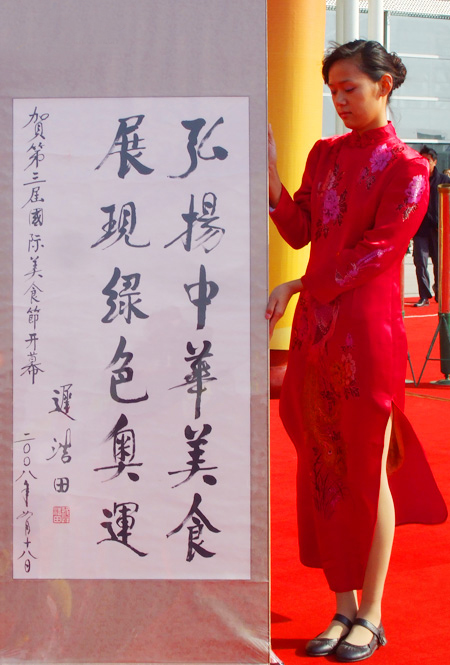 弘揚中華美食
展現綠色奥運
賀第三屆國际美食節开幕
遲浩田
二〇〇八年 月十八日